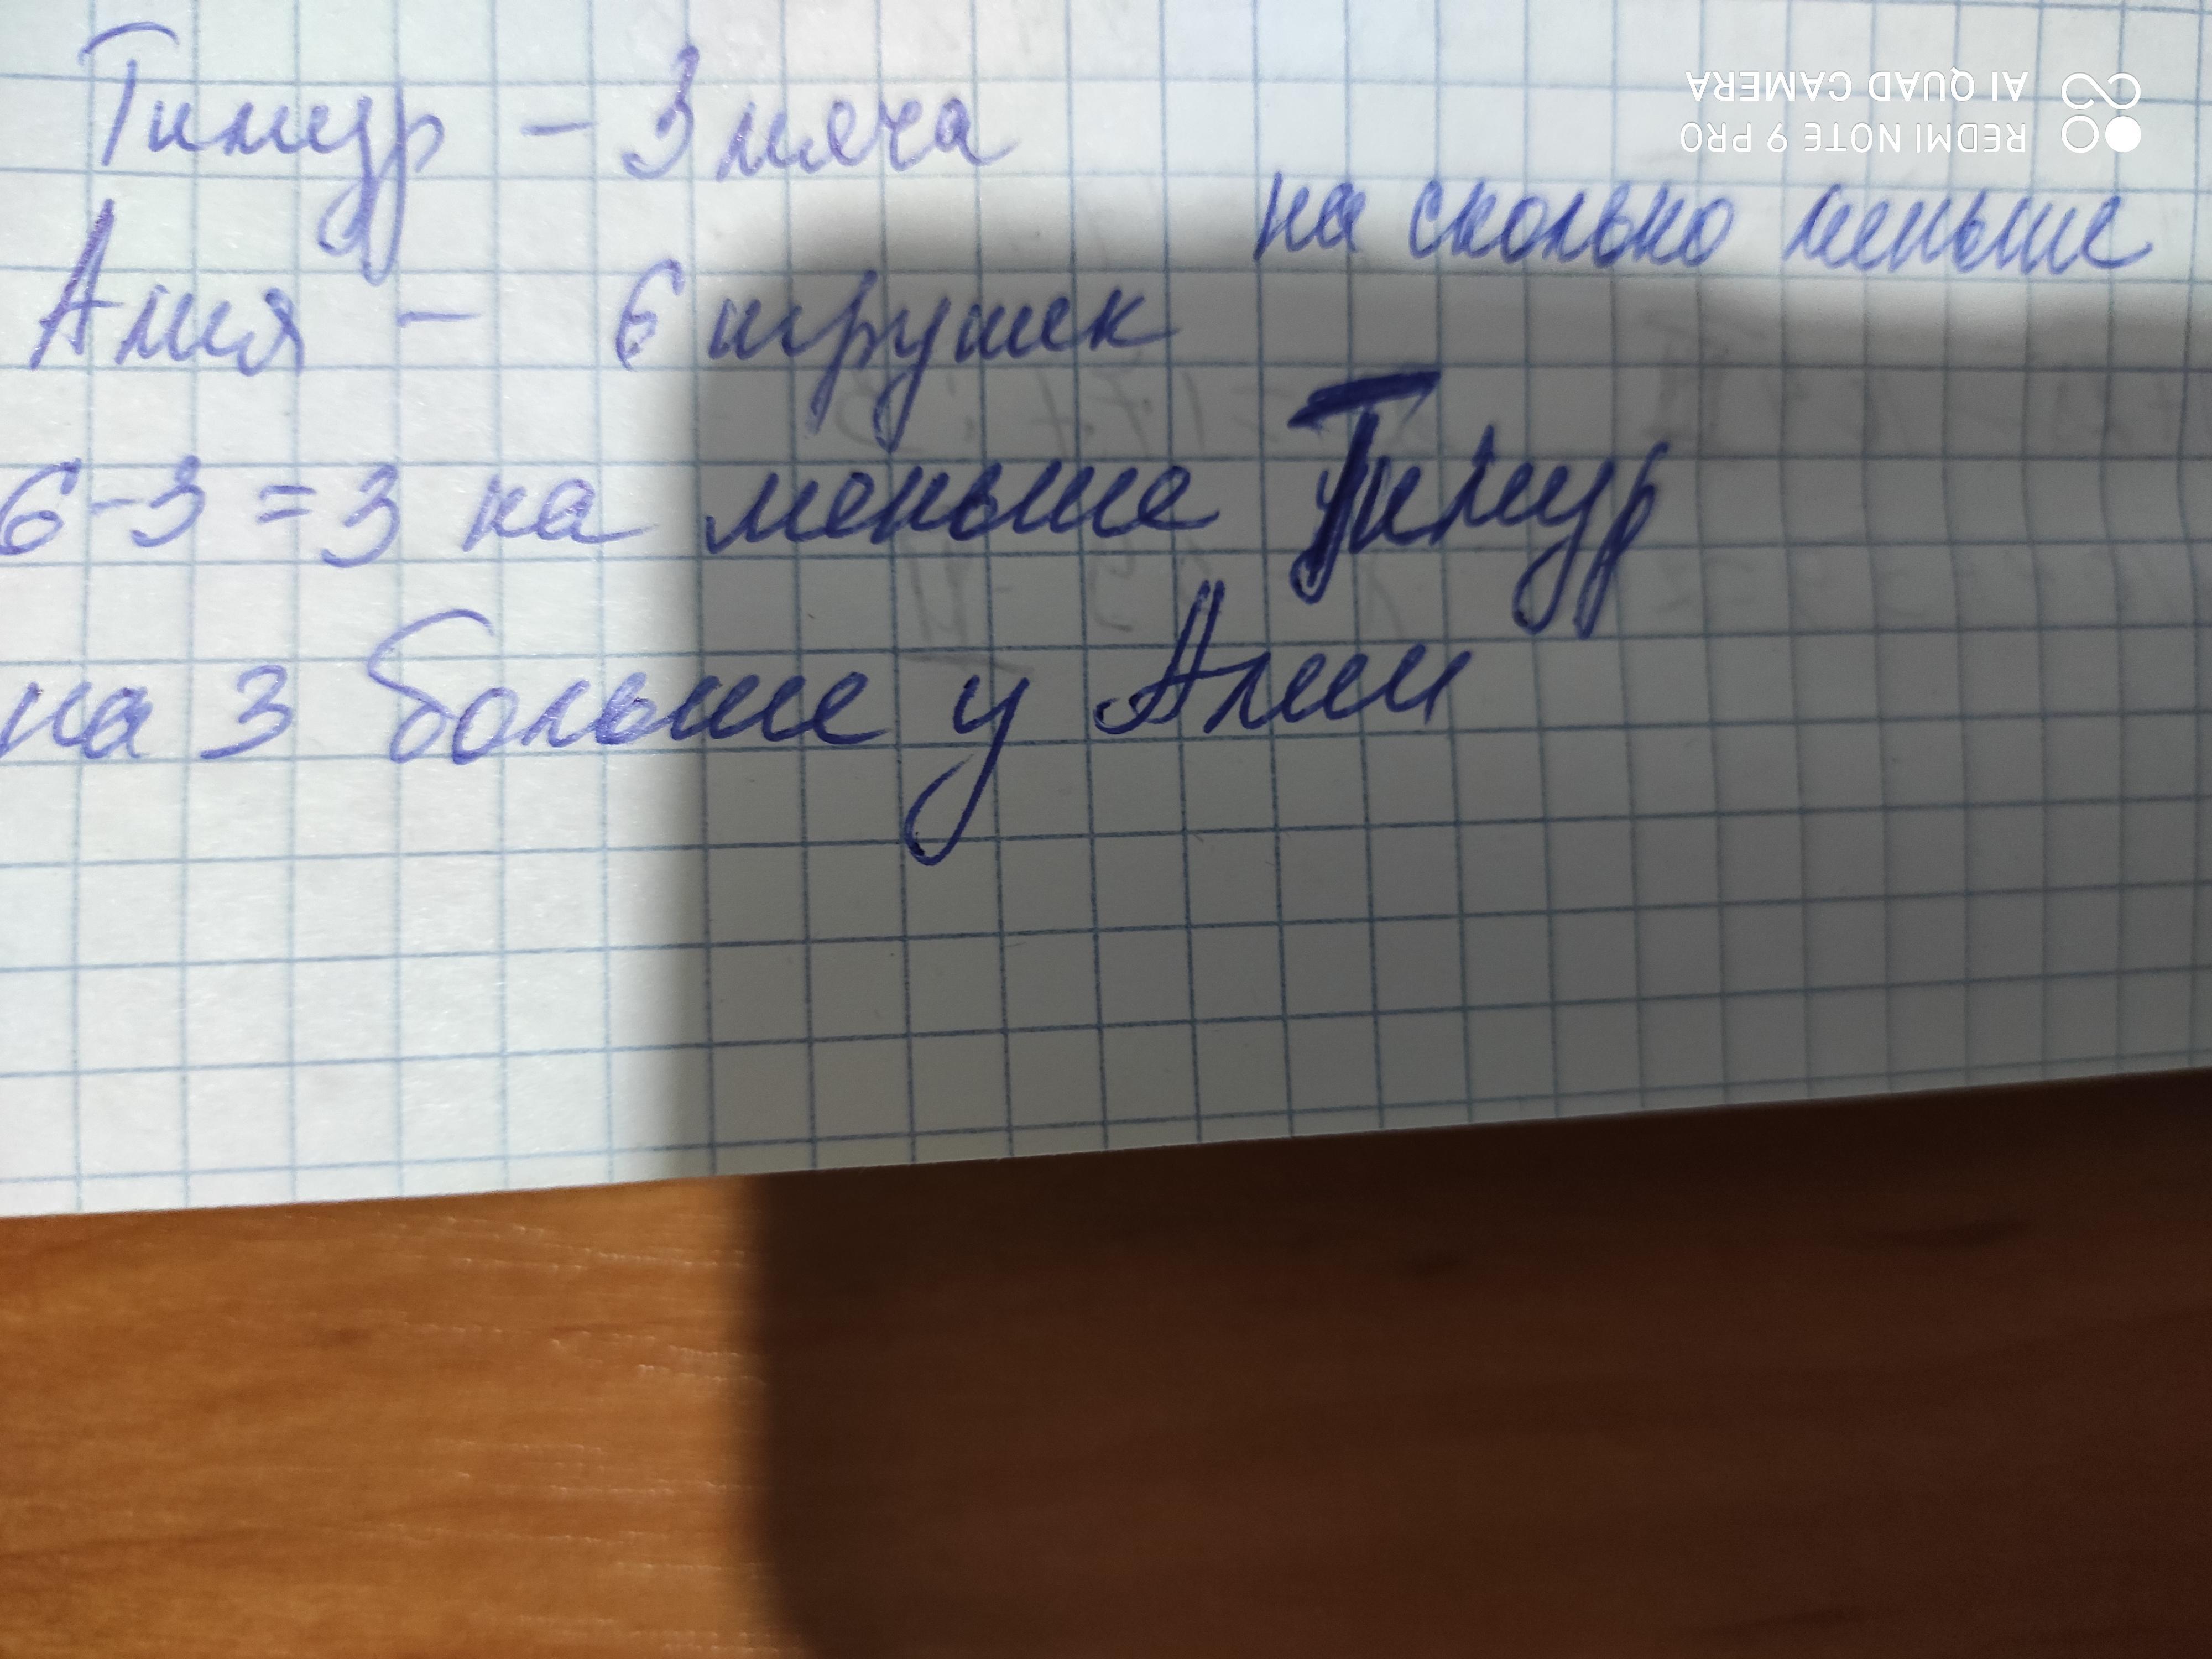 Тимур - 3 мяча
на сколько меньше
Алия - 6 игрушек
6-3=3 на меньше Тимур
на 3 больше у Алии
REDMI NOTE 9 PRO
AI QUAD CAMERA